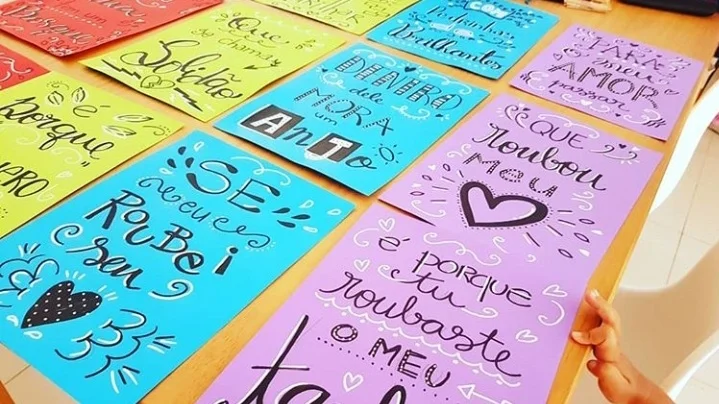 Bosque
Que
se chama
Solidão
COM
Pedrinhas
Brilhantes
PARA
o meu
AMOR
passar
DENTRO
dele
MORA
um
ANJO
QUE
Roubou
MEU
é
PORQUE
SE
eu
ROUBEi
seu
é PORQUE
tu
roubaste
O MEU